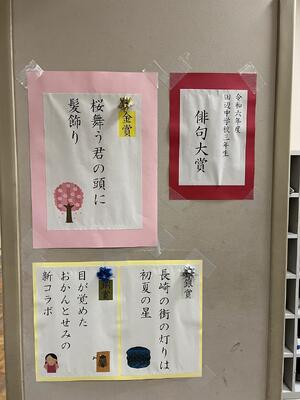 令和六年度
田辺中学校三年生
俳句大賞
金賞
桜舞う君の頭に
髪飾り
銀賞
長崎の街の灯りは
初夏の星
銀賞
目が覚めた
おかんとせみの
新コラボ